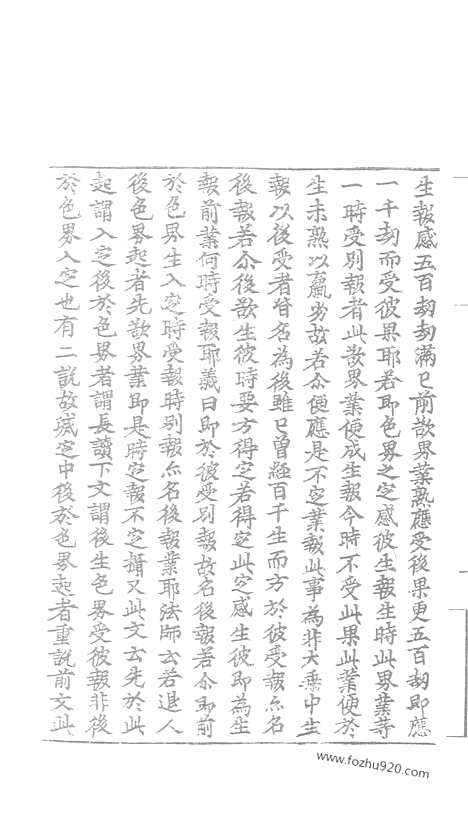 生報感五百劫劫滿已前散界業熟應受後果更五百劫即應
一千劫而受彼果耶若即色界之定感彼生報生時此界業等
一時受別報者此散界業便成生報今時不受此果此業便於
生未熟以羸劣故若尒便應是不定業報此事為非大乘中生
報以後受者皆名為後雖已曾經百千生而方於彼受報亦名
後報若尒後散生彼時要方得定若得定此定感生彼即為生
報前業何時受報耶義曰即於彼受別報故名後報若尒即前
於色界生入定時受報時別報亦名後報業耶法師云若退人
後色界起者先散界業即是時定報不定攝又此文云先於此
起謂入定後於色界者謂長讀下文謂後生色界受彼報非後
於色界入定也有二說故滅定中後於色界起者重說前文此
www.fozhu920.com